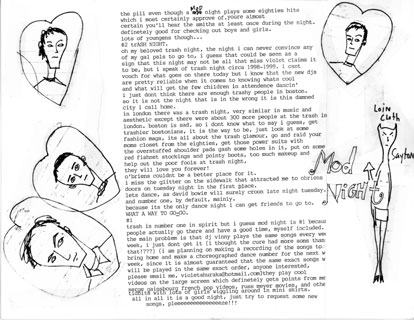 the pill even though a MOD night plays some eighties hits
which i most certainly approve of.youre almost
certain you'll hear the smiths at least once during the night.
definetely good for checking out boys and girls.
lots of youngens though...
#2 tRASH NIGHT.
oh my beloved trash night, the night i can never convince any
of my gal pals to go to, i guess that could be seen as a
sign that this night may not be all that miss violet claims it
to be, but i speak of trash night circa 1998-1999. i cant
vouch for what goes on there today but i know that the new djs
are pretty reliable when it comes to knowing whats cool
and what will get the few children in attendence dancin'
i just dont think there are enough trashy people in boston.
so it is not the night that is in the wrong it is this damned
city i call home.
in london there was a trash night, very similar in music and
aesthetic except there were about 300 more people at the trash in
london. boston is sad. so i dont know what to say i guess, get
trashier bostonians, it is the way to be. just look at some
fashion mags, its all about the trash glamour. go and raid your
moms closet from the eighties, get those power suits with
the overstuffed shoulder pads gash some holes in it, put on some
red fishnet stockings and pointy boots, too much makeup and
help out the poor fools at trash night.
they will love you forever!
o'briens couldnt be a better place for it.
i miss the glitter on the sidewalk that attracted me to obriens
doors on tuesday night in the first place.
lets dance, as david bowie will surely croon late night tuesday.
and number one, by default. mainly.
because its the only dance night i can get friends to go to.
WHAT A WAY TO GO
#1
trash is number one in spirit but i guess mod night is #1 becaus
people actually go there and have a good time, myself included.
the main problem is that dj vinny plays the same songs every we
week, i just dont get it (i thought the cure had more songs than
that!???) (i am planning on making a recording of the songs to
bring home and make a choreographed dance number for the next w
week, since it is almost guaranteed that the same exact songs
will be played in the same exact order, anyone interested,
please email me, violetshuraka@hotmail.com)they play cool
videos on the large screen which definetely gets points from me
serge gainsbourg french pop videos, russ meyer movies, and othe
tidbits with lots of girls wiggling around in mini skirts.
all in all it is a good night, just try to request some new
songs, pleeeeeeeeeeeeeeze!!!
Loin
Cloth
Sayton
Mod
Night